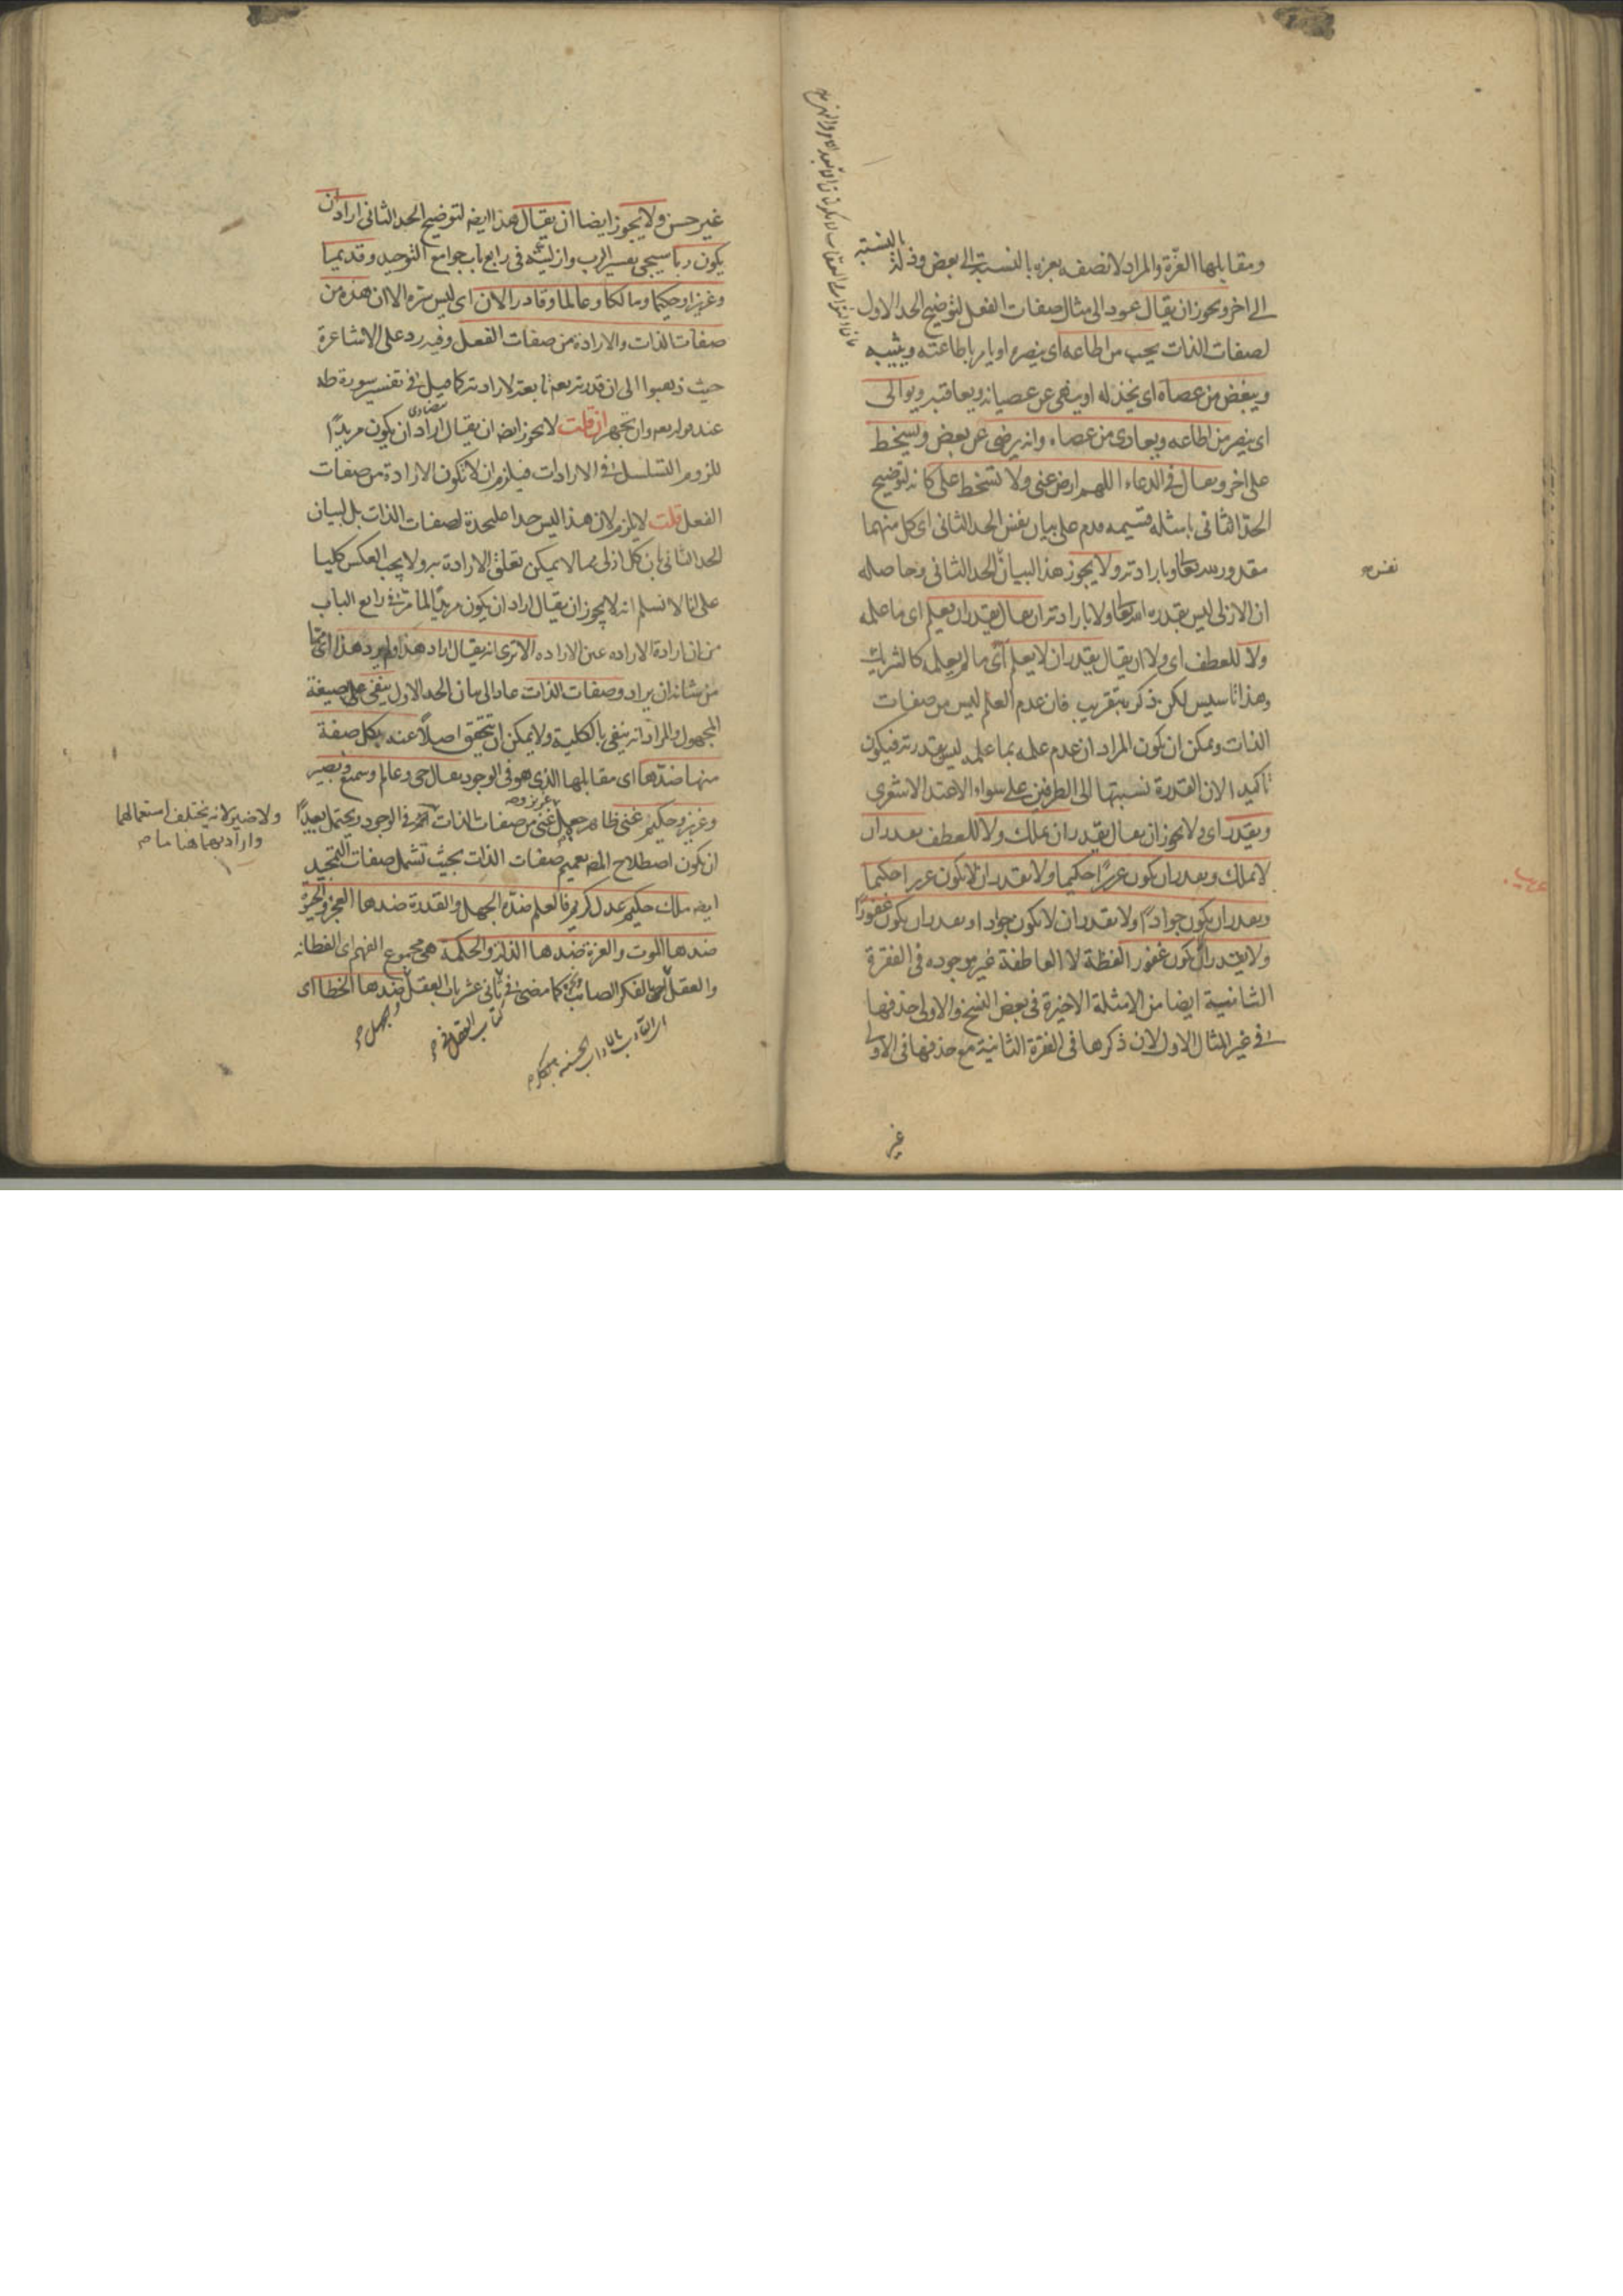 ومقابلها العزة والمراد لا نصفه بعزة بالنسبة الى بعض وذلة بالنسبة
الى اخر ويجوز ان يقال عود الى مثال صفات الفعل لتوضيح الحد الاول
لصفات الذات يحب من اطاعه اى ينصره او يامر باطاعته ويثيبه
ويبغض من عصاه اى يخذله او ينهى عن عصيانه ويعاقبه ويوالى
اى ينصر من اطاعه ويعادى من عصاه وانه يرضى عن بعض ويسخط
على اخر ويقال فى الدعاء اللهم ارض عنى ولا تسخط على كانه لتوضيح
الحد الثانى بامثلة قسيمه قدم على بيان نفس الحد الثانى اى كل منهما
مقدور لله تعالى وبارادته ولا يجوز هذا لبيان الحد الثانى وحاصله
نفس
ان الازلى ليس بقدرة الله تعالى ولا بارادته ان يقال يقدر ان يعلم اى ما علمه
ولا للعطف اى ولا ان يقال يقدر ان لا يعلم اى ما لم يعلمه كالشريك
وهذا تاسيس لكن ذكر بتقريب فان عدم العلم ليس من صفات
الذات ويمكن ان يكون المراد ان عدم علمه بما علمه ليس بقدرته فيكون
تاكيدا لان القدرة نسبتها الى الطرفين على سواء
ويقدر اى ولا يجوز ان يقال يقدر ان يملك ولا للعطف يقدر ان
لا يملك ويقدر ان يكون عزيزا حكيما ولا يقدر ان لا يكون عزيزا حكيما
ويقدر ان يكون جوادا ولا يقدر ان لا يكون جوادا ويقدر ان يكون غفورا
ولا يقدر ان لا يكون غفورا لفظة لا العاطفة غير موجوده فى الفقرة
الثانية ايضا من الامثلة الاخيرة فى بعض النسخ والاولى حذفها
فى غير المثال الاول لان ذكرها فى الفقرة الثانية مع حذفها فى الاولى
غير
غير حسن ولا يجوز ايضا ان يقال هذا ايضا لتوضيح الحد الثانى اراد ان
يكون ربا سيجى تفسير الرب وازليته فى رابع باب جوامع التوحيد وقديما
وعزيزا وحكيما ومالكا وعالما وقادرا لان اى ليس سره الا ان هذه من
صفات الذات والارادة من صفات الفعل وفيه رد على الاشاعرة
حيث ذهبوا الى ان قدرته تعالى تابعة لارادته كما قيل فى تفسير سورة طه
عند قوله تعالى وان تجهر ان قلت لا يجوز ايضا ان يقال اراد ان يكون مريدا
للزوم التسلسل فى الارادات فيلزم ان لا تكون الارادة من صفات
الفعل قلت لا يلزم لان هذا ليس حدا علىحدة لصفات الذات بل لبيان
الحد الثانى بان كل ازلى مما لا يمكن تعلق الارادة به ولا يجب العكس كليا
على انا لا نسلم انه لا يجوز ان يقال اراد ان يكون مريدا لما مر فى رابع الباب
من ان ارادة الاراده عين الاراده الا ترى انه يقال اراد هذا ولم يرد هذا اى مما
من شانه ان يراد وصفات الذات عاد الى بيان الحد الاول ينفى على صيغة
المجهول والمراد انه ينفى بالكلية ولا يمكن ان يتحقق اصلا عنه بكل صفة
منها ضدها اى مقابلها الذى هو فى الوجود يقال حى وعالم وسميع وبصير
وعزيز وحكيم غنى ظاهره جعل غنى من صفات الذات فى الوجود ويحتمل بعيدا
ولا ضير لانه يختلف استعمالهما
واراد بهما هنا ما مر
ان يكون اصطلاح المصنف تعميم صفات الذات بحيث تشمل صفات التمجيد
ايضا ملك حكيم عدل كريم فالعلم ضده الجهل والقدرة ضدها العجز والحيوة
ضدها الموت والعزة ضدها الذلة والحكمة هى مجموع الفهم اى الفطانه
والعقل اى الفكر الصائب كما مضى فى ثانى عشر باب العقل ضدها الخطا اى
كتاب العقل